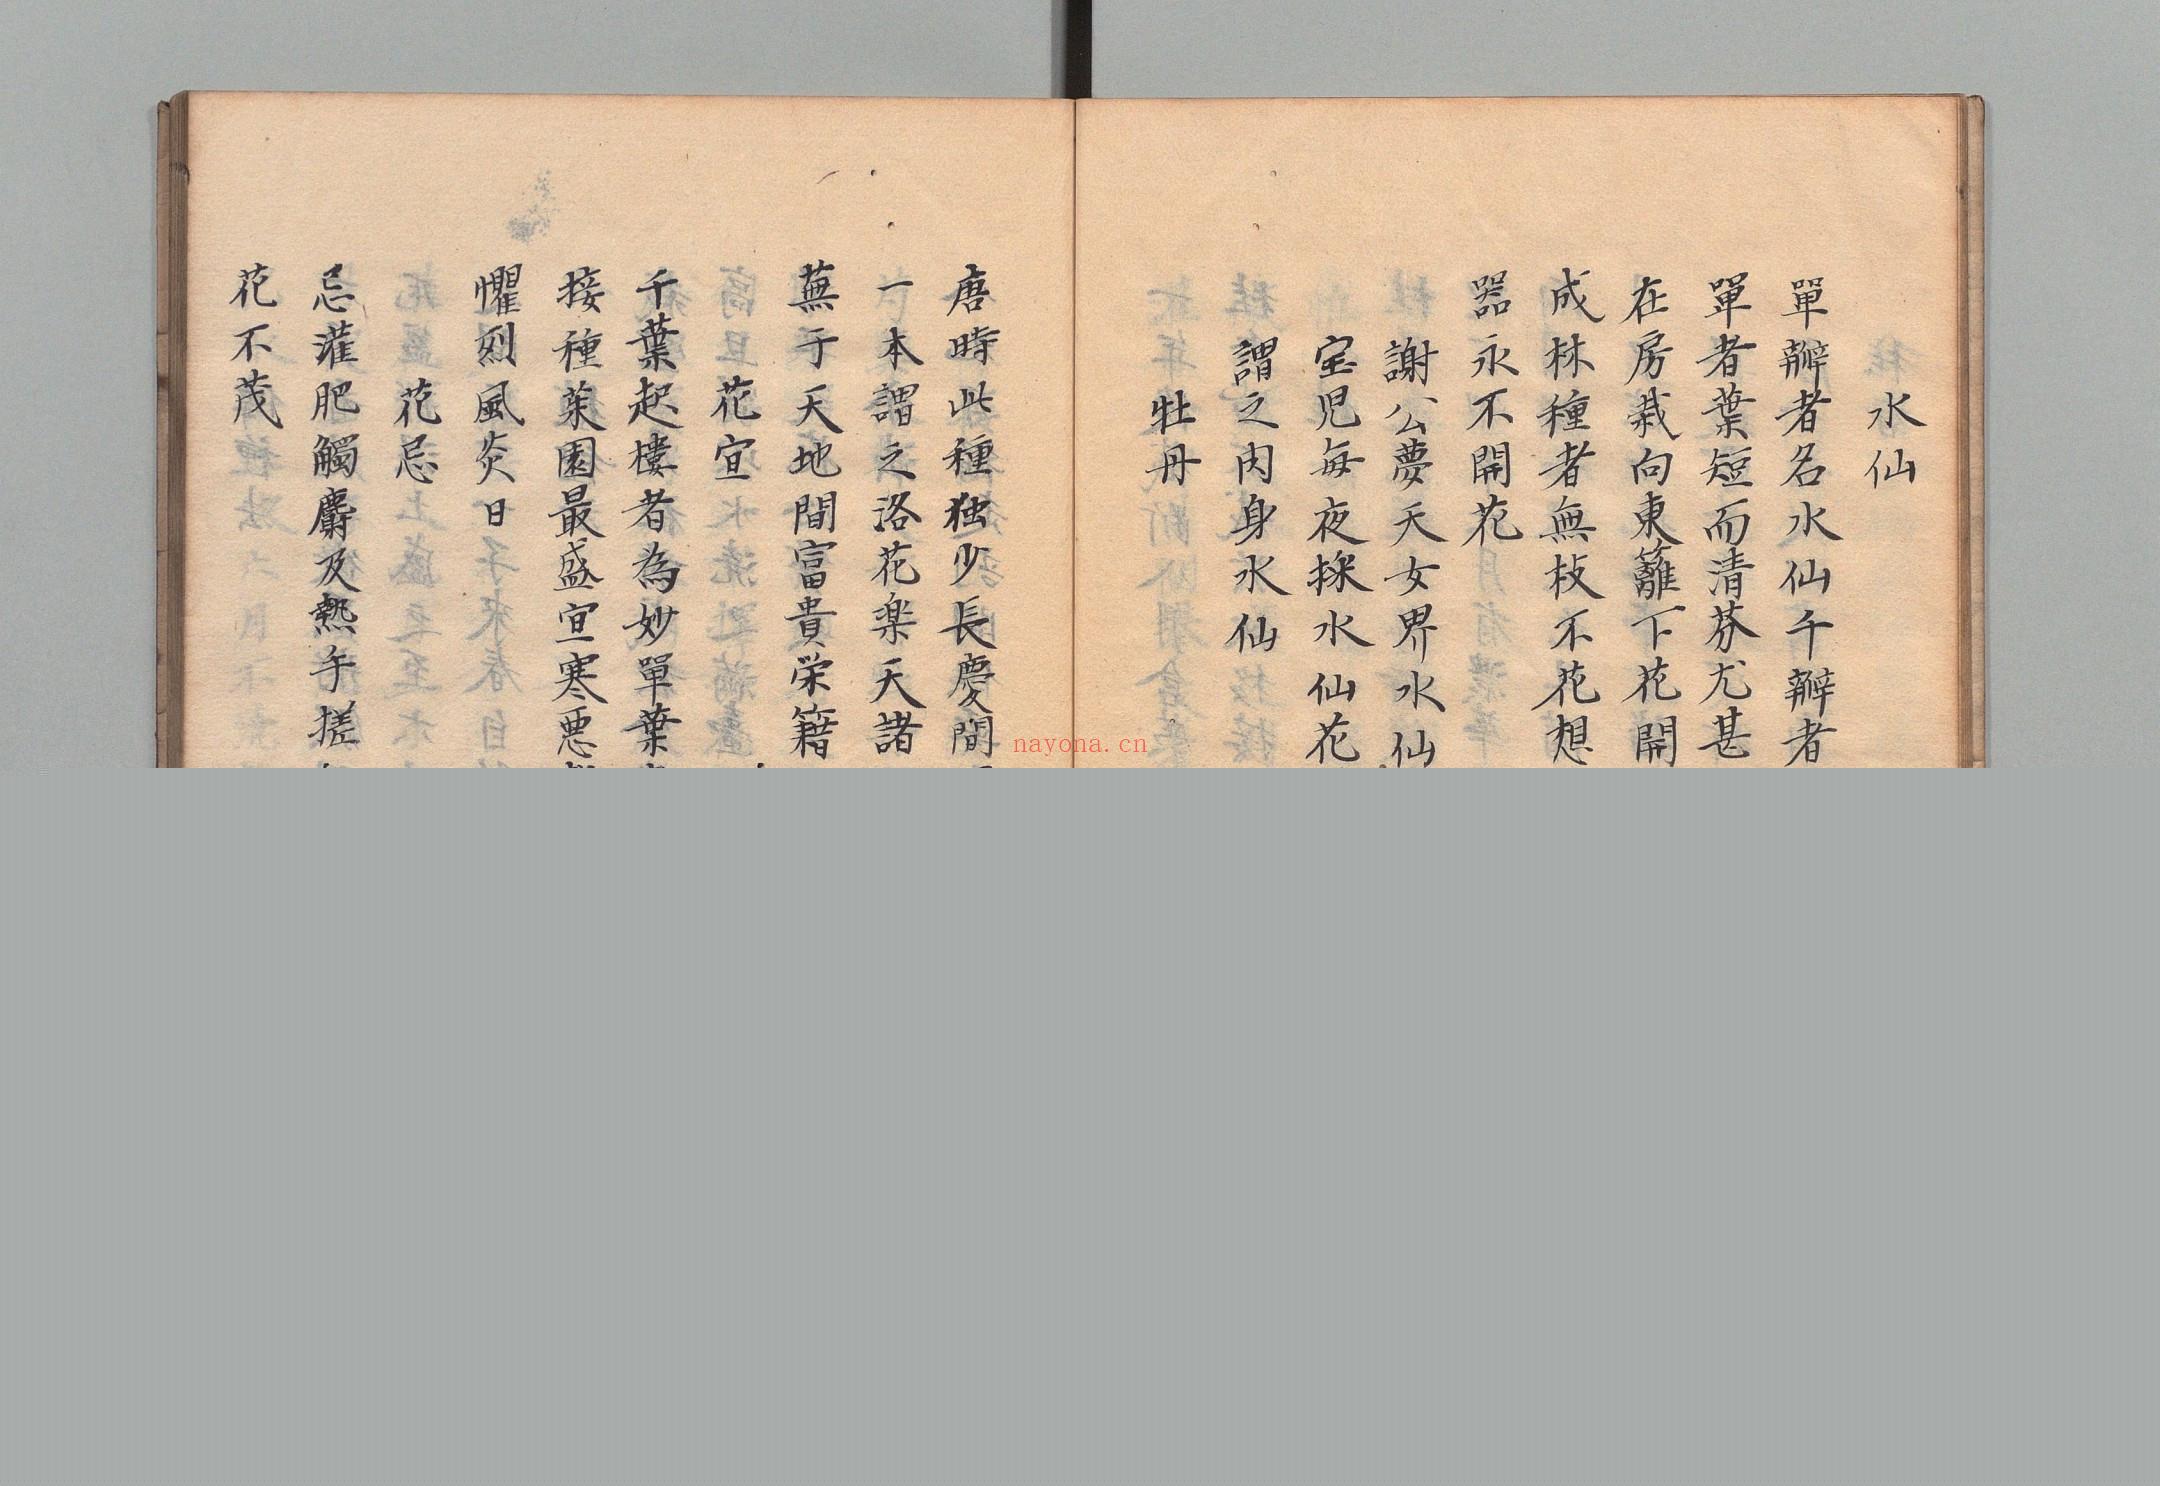 水仙
單瓣者名水仙千瓣者
單者葉短而清芬尤甚
在房栽向東籬下花開
成林種者無枝不花想
器永不開花
謝公夢天女畀水仙
宝児每夜採水仙花
謂之肉身水仙
牡丹
唐時此種独少長慶間
一本謂之洛花楽天諸
蕪于天地間富貴栄籍
花宜
千葉起樓者為妙單葉
接種茱園最盛宜寒悪
懼烈風炎日
花忌
忌灌肥觸麝及熱手搓
花不茂
nayona.cn